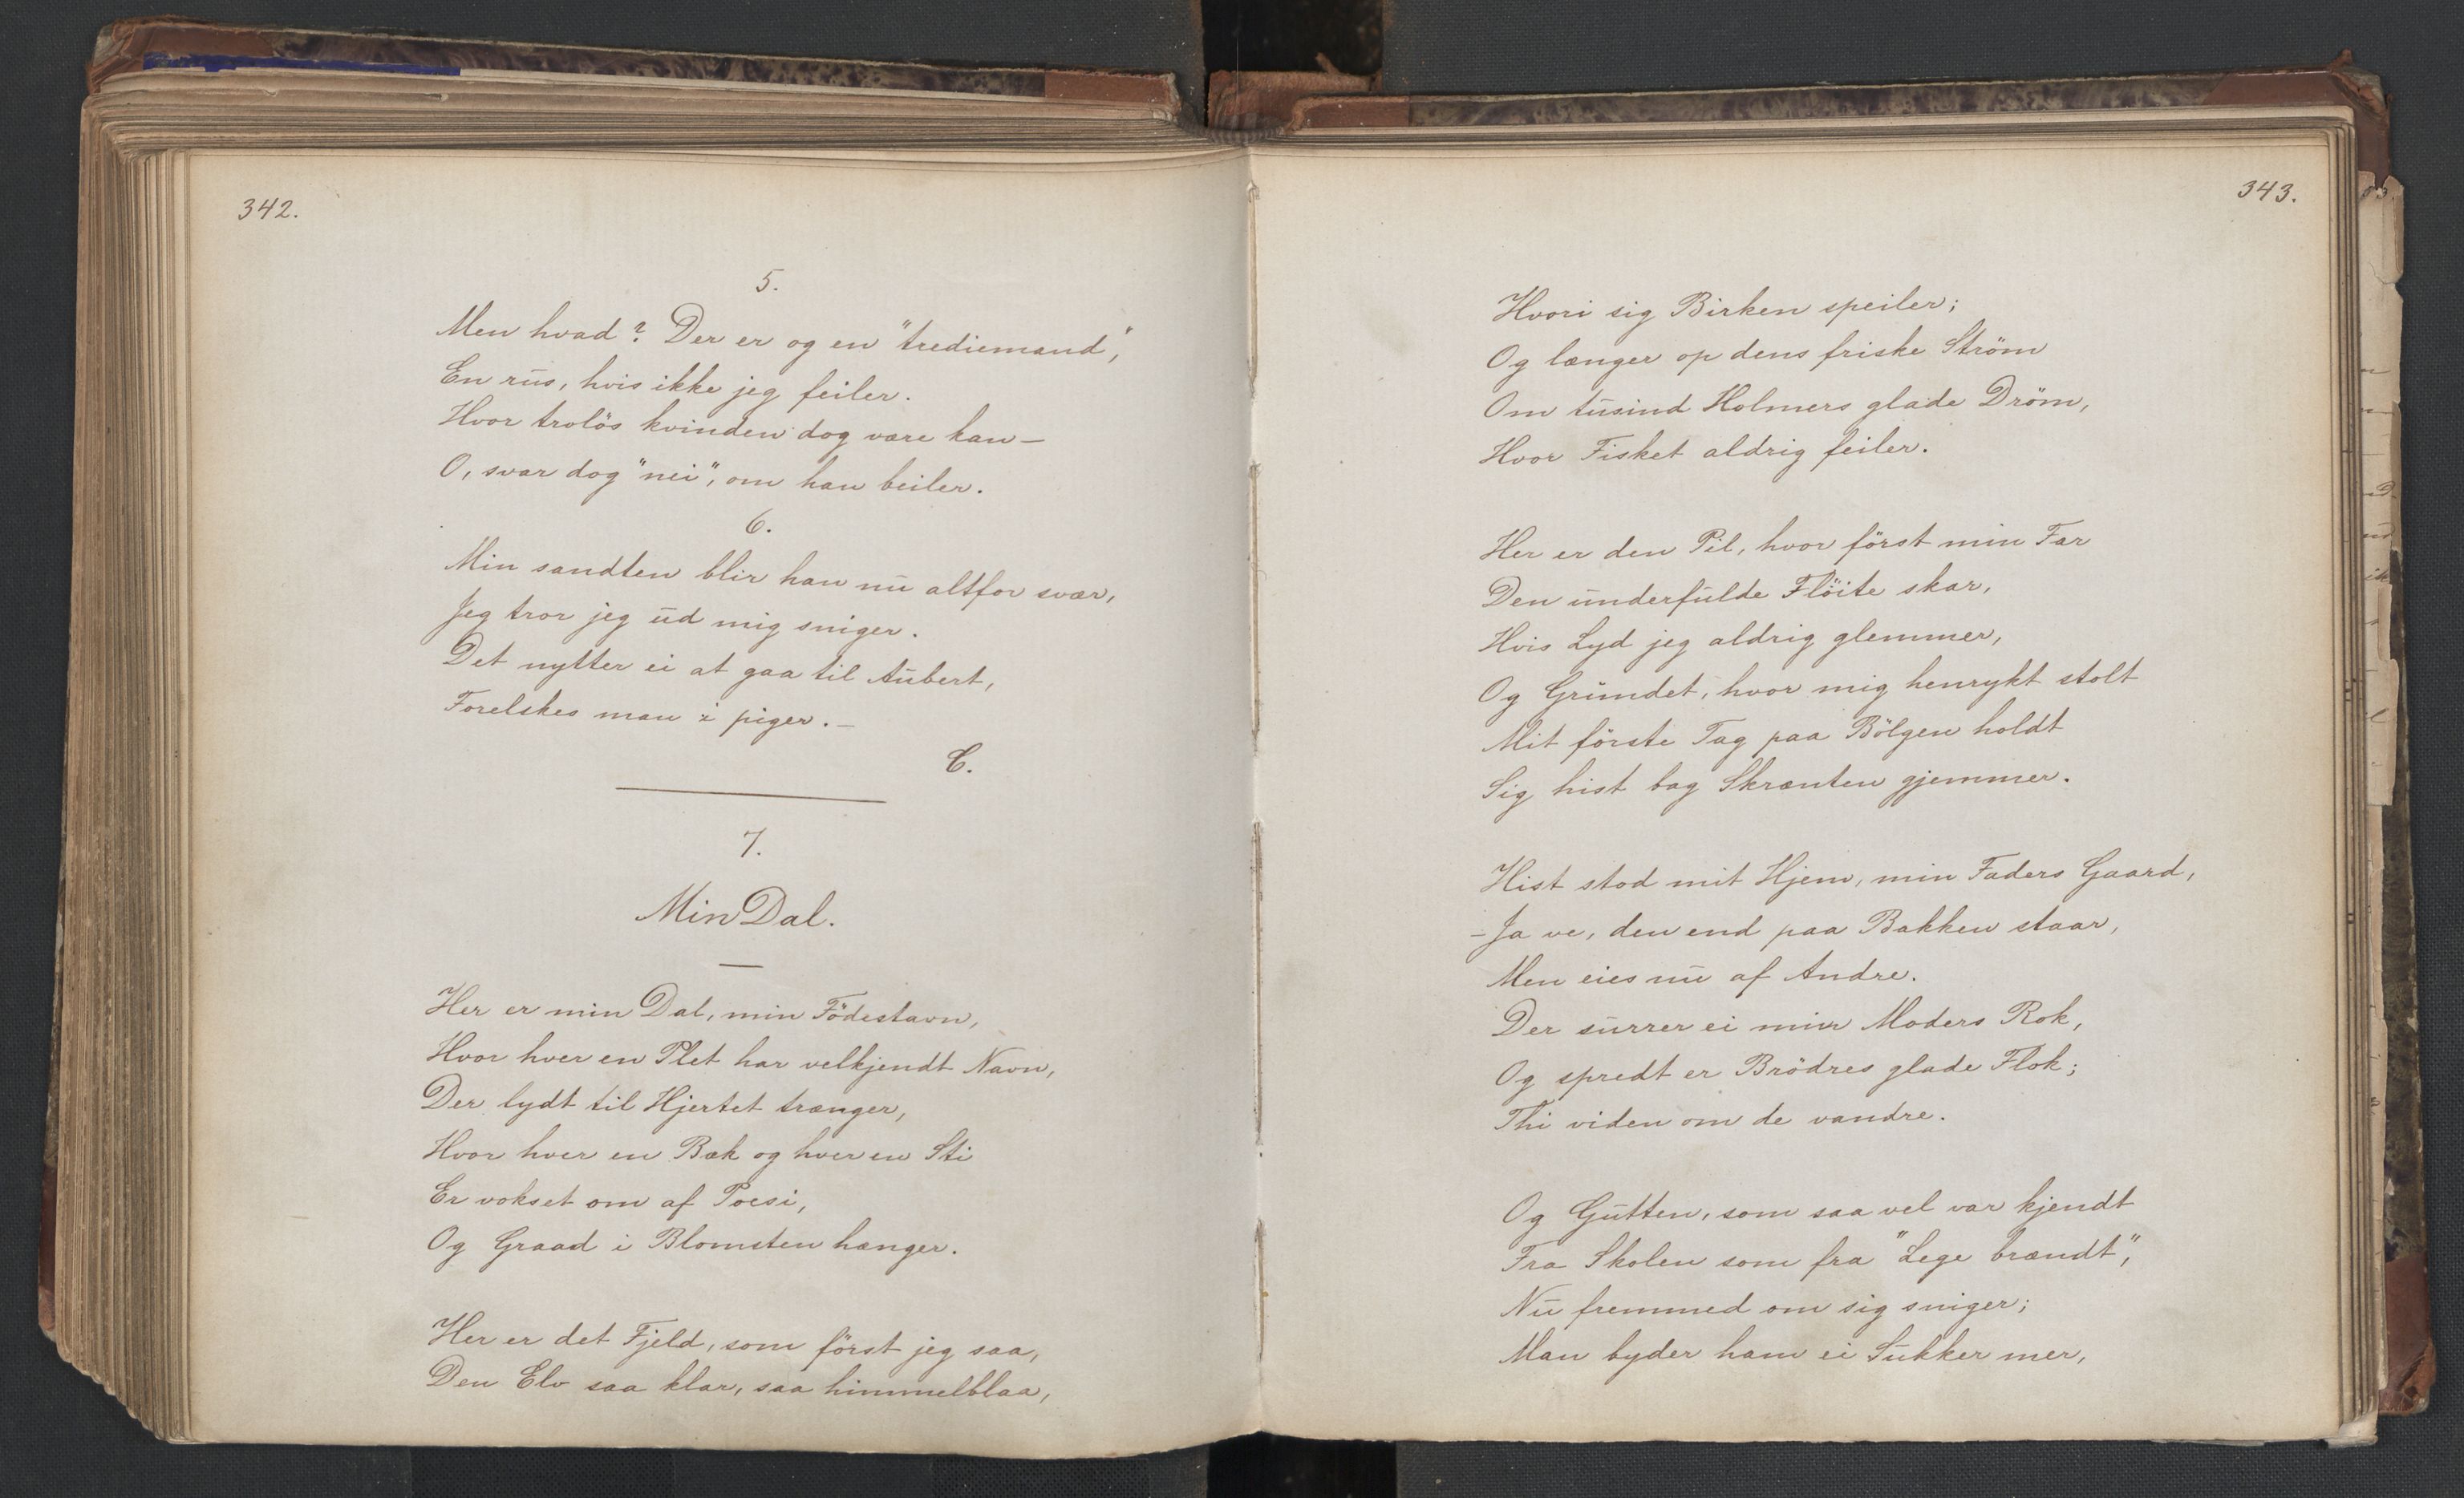 342.
5.
Men hvad? Der er og en "trediemand",
En rus, hvis ikke jeg feiler.
Hvor trolös kvinden dog være kan—
O, svar dog "nei", om han beiler.
6.
Min sandten blir han nu altfor svær,
Jeg tror jeg ud mig sniger.
Det nytter ei at gaa til Aubert,
Forelskes man i piger.—
C.
7.
Min Dal.
Her er min Dal, min Födestavn,
Hvor hver en Plet har velkjendt Navn,
Der lydt til Hjertet trænger,
Hvor hver en Bæk og hver en Sti
Er vokset om af Poesi,
Og Graad i Blomsten hænger.
Her er det Fjeld, som först jeg saa,
Den Elv saa klar, saa himmelblaa,
343.
Hvori sig Birken speiler;
Og længer op dens friske Ström
Om tusind Holmers glade Dröm,
Hvor Fisket aldrig feiler.
Her er den Pil, hvor först min Far
Den underfulde Flöite skar,
Hvis Lyd jeg aldrig glemmer,
Og Grundet, hvor mig henrykt stolt
Mit förste Tag paa Bölgen holdt
Sig hist bag Skrænten gjemmer.
Hist stod mit Hjem, min Faders Gaard,
- Ja ve, den end paa Bakken staar,
Men eies nu af Andre.
Der surrer ei min Moders Rok,
Og spredt er Brödres glade Flok;
Thi viden om de vandre.
Og Gutten, som saa vel var kjendt
Fra Skolen som fra "Lege brændt",
Nu fremmed om sig sniger;
Man byder ham ei Sukker mer,